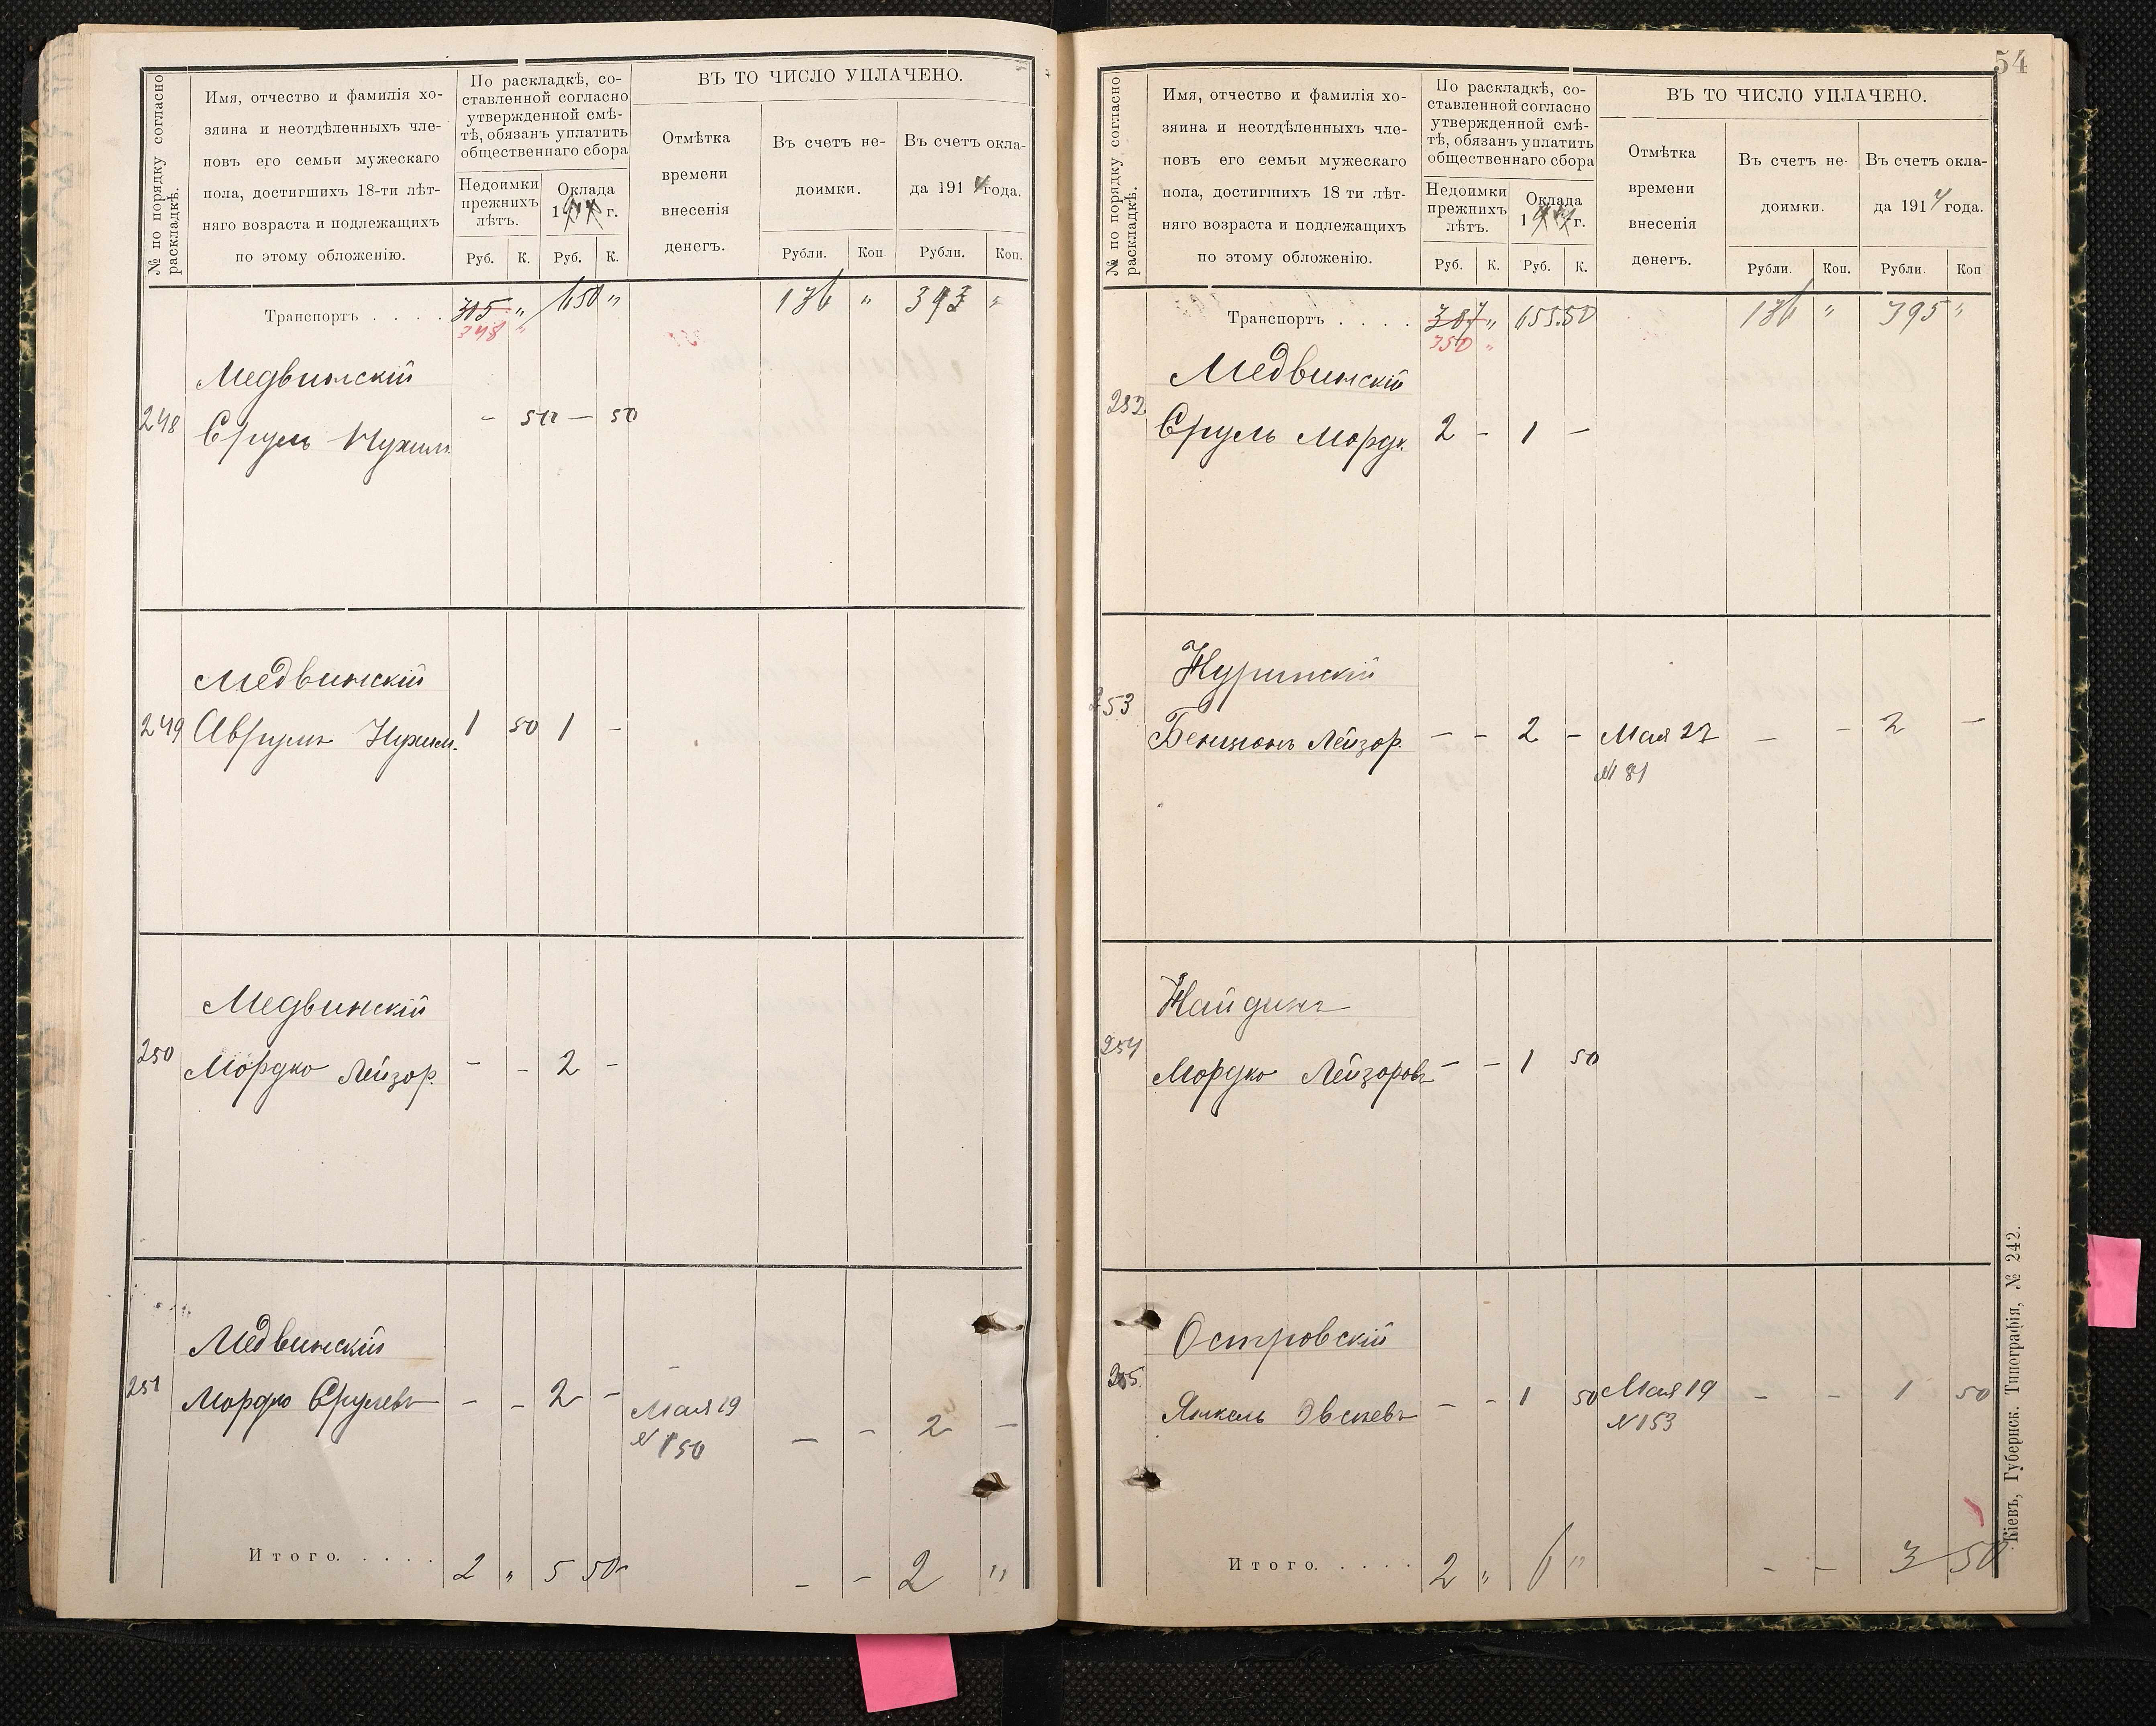 № по порядку согласно раскладкѣ.
Имя, отчество и фамилія хо-
зяина и неотдѣленныхъ чле-
новъ его семьи мужескаго
пола, достигшихъ 18-ти лѣт-
няго возраста и подлежащихъ
по этому обложенію.
По раскладкѣ, со-
ставленной согласно
утвержденной смѣ-
тѣ, обязанъ уплатить
общественнаго сбора
Недоимки
прежнихъ
лѣтъ.
Оклада
1914 г.
Руб. К. Руб. К.
ВЪ ТО ЧИСЛО УПЛАЧЕНО.
Отмѣтка
времени
внесенія
денегъ.
Въ счетъ не-
доимки.
Въ счетъ окла-
да 1914 года.
Рубли. Коп. Рубли. Коп.
Транспортъ . . . . „ 650 „ 136 „ 393 „
348 „
Медвинскій
248 Сруль Нухим. – 50 – 50
Медвинскій
249 Аврумъ Нухим. 1 50 1 –
Медвинскій
250 Мордко Лейзор. – – 2 –
Медвинскій
251 Мордко Срулевъ – – 2 – Мая 19 – – 2 –
№ 150
Итого. . . . . 2 „ 5 50 – – 2 „
54
№ по порядку согласно раскладкѣ.
Имя, отчество и фамилія хо-
зяина и неотдѣленныхъ чле-
новъ его семьи мужескаго
пола, достигшихъ 18 ти лѣт-
няго возраста и подлежащихъ
по этому обложенію.
По раскладкѣ, со-
ставленной согласно
утвержденной смѣ-
тѣ, обязанъ уплатить
общественнаго сбора
Недоимки
прежнихъ
лѣтъ.
Оклада
1914 г.
Руб. К. Руб. К.
ВЪ ТО ЧИСЛО УПЛАЧЕНО.
Отмѣтка
времени
внесенія
денегъ.
Въ счетъ не-
доимки.
Въ счетъ окла-
да 1914 года.
Рубли. Коп. Рубли. Коп
Транспортъ . . . . „ 655.50 136 „ 395 „
350 „
Медвинскій
252. Сруль Мордк. 2 – 1 –
Нуринскій
253 Бенціонъ Лейзор. – – 2 – Мая 27 – – 2 –
№ 81
Найдинъ
254 Мордко Лейзоровъ – – 1 50
Островскій
255. Янкель – – 1 50 Мая 19 – – 1 50
№ 153
Итого. . . . . 2 „ 6 „ – – 3 50
Кіевъ, Губернск. Типографія, № 242.